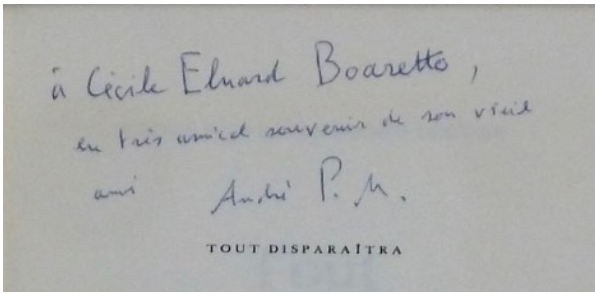 à Cécile Eluard Boaretto,
en très amical souvenir de son vieil
ami André P. M.
TOUT DISPARAÎTRA